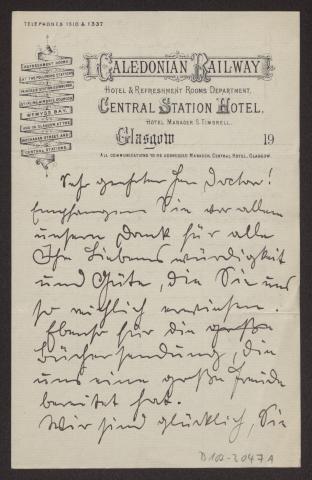 TELEPHONES 1510 & 1337
REFRESHMENT ROOMS
AT THE FOLLOWING STATIONS
STIRLING
WEMYSS BAY,
AND IN GLASGOW AT THE
BUCHANAN STREET AND
CENTRAL STATIONS.
CALEDONIAN RAILWAY
HOTEL & REFRESHMENT ROOMS DEPARTMENT.
CENTRAL STATION HOTEL,
HOTEL MANAGER S. TIMBRELL.
Glasgow 19
ALL COMMUNICATIONS TO BE ADDRESSED MANAGER, CENTRAL HOTEL, GLASGOW.
Sehr geehrter Herr Doctor!
Empfangen Sie vor allem
unsern Dank für alle
Ihre Liebenswürdigkeit
und Güte, die Sie uns
so reichlich erwiesen.
Ebenso für die große
Büchersendung, die
uns eine große Freude
bereitet hat.
Wir sind glücklich, Sie
D 100-2047 A